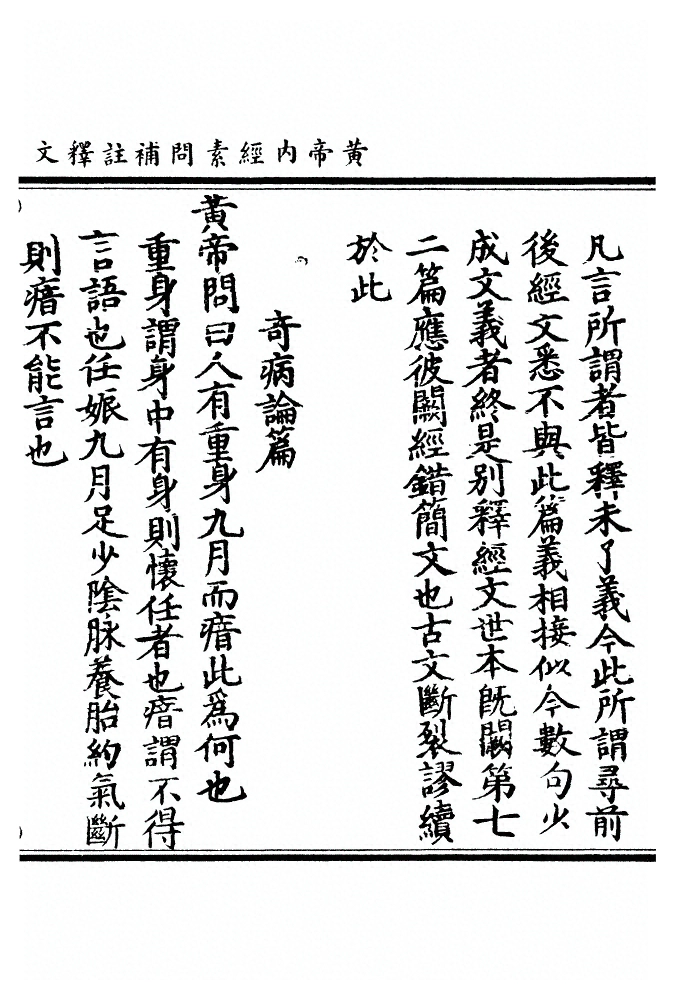 黃帝內經素問補註釋文
凡言所謂者皆釋未了義今此所謂尋前
後經文悉不與此篇義相接似今數句少
成文義者終是別釋經文世本旣闕第七
二篇應彼闕經錯簡文也古文斷裂謬續
於此
奇病論篇
黃帝問曰人有重身九月而瘖此爲何也
重身謂身中有身則懷任者也瘖謂不得
言語也任娠九月足少陰脉養胎約氣斷
則瘖不能言也